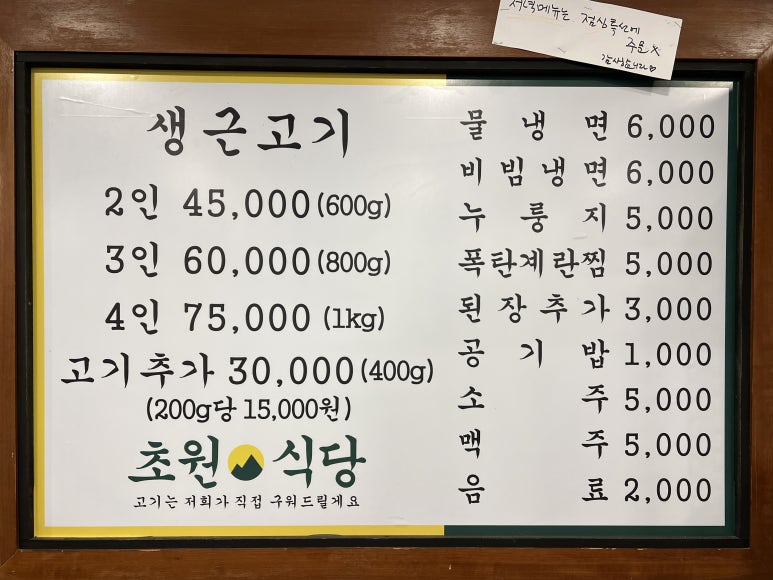 저녁메뉴는 점심특선에
주문 X
감사합니다♡
생근고기
2인 45,000(600g)
3인 60,000(800g)
4인 75,000 (1kg)
고기추가 30,000(400g)
(200g당 15,000원)
초원 식당
고기는 저희가 직접 구워드릴게요
물냉면 6,000
비빔냉면 6,000
누룽지 5,000
폭탄계란찜 5,000
된장추가 3,000
공기밥 1,000
소주 5,000
맥주 5,000
음료 2,000